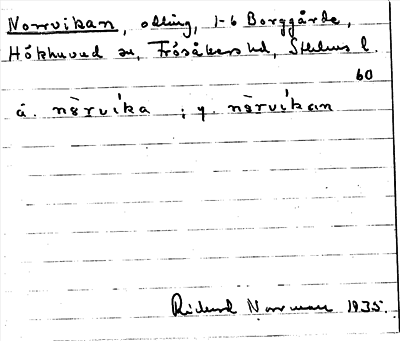 Norrvikan, odling, 1-6 Borggårde,
Hökhuvud sn, Frösåkers hd, Sthlms l.
60
ä. nè̀rvíka ; y. nè̀rvíkan
Rickard Norrman 1935.